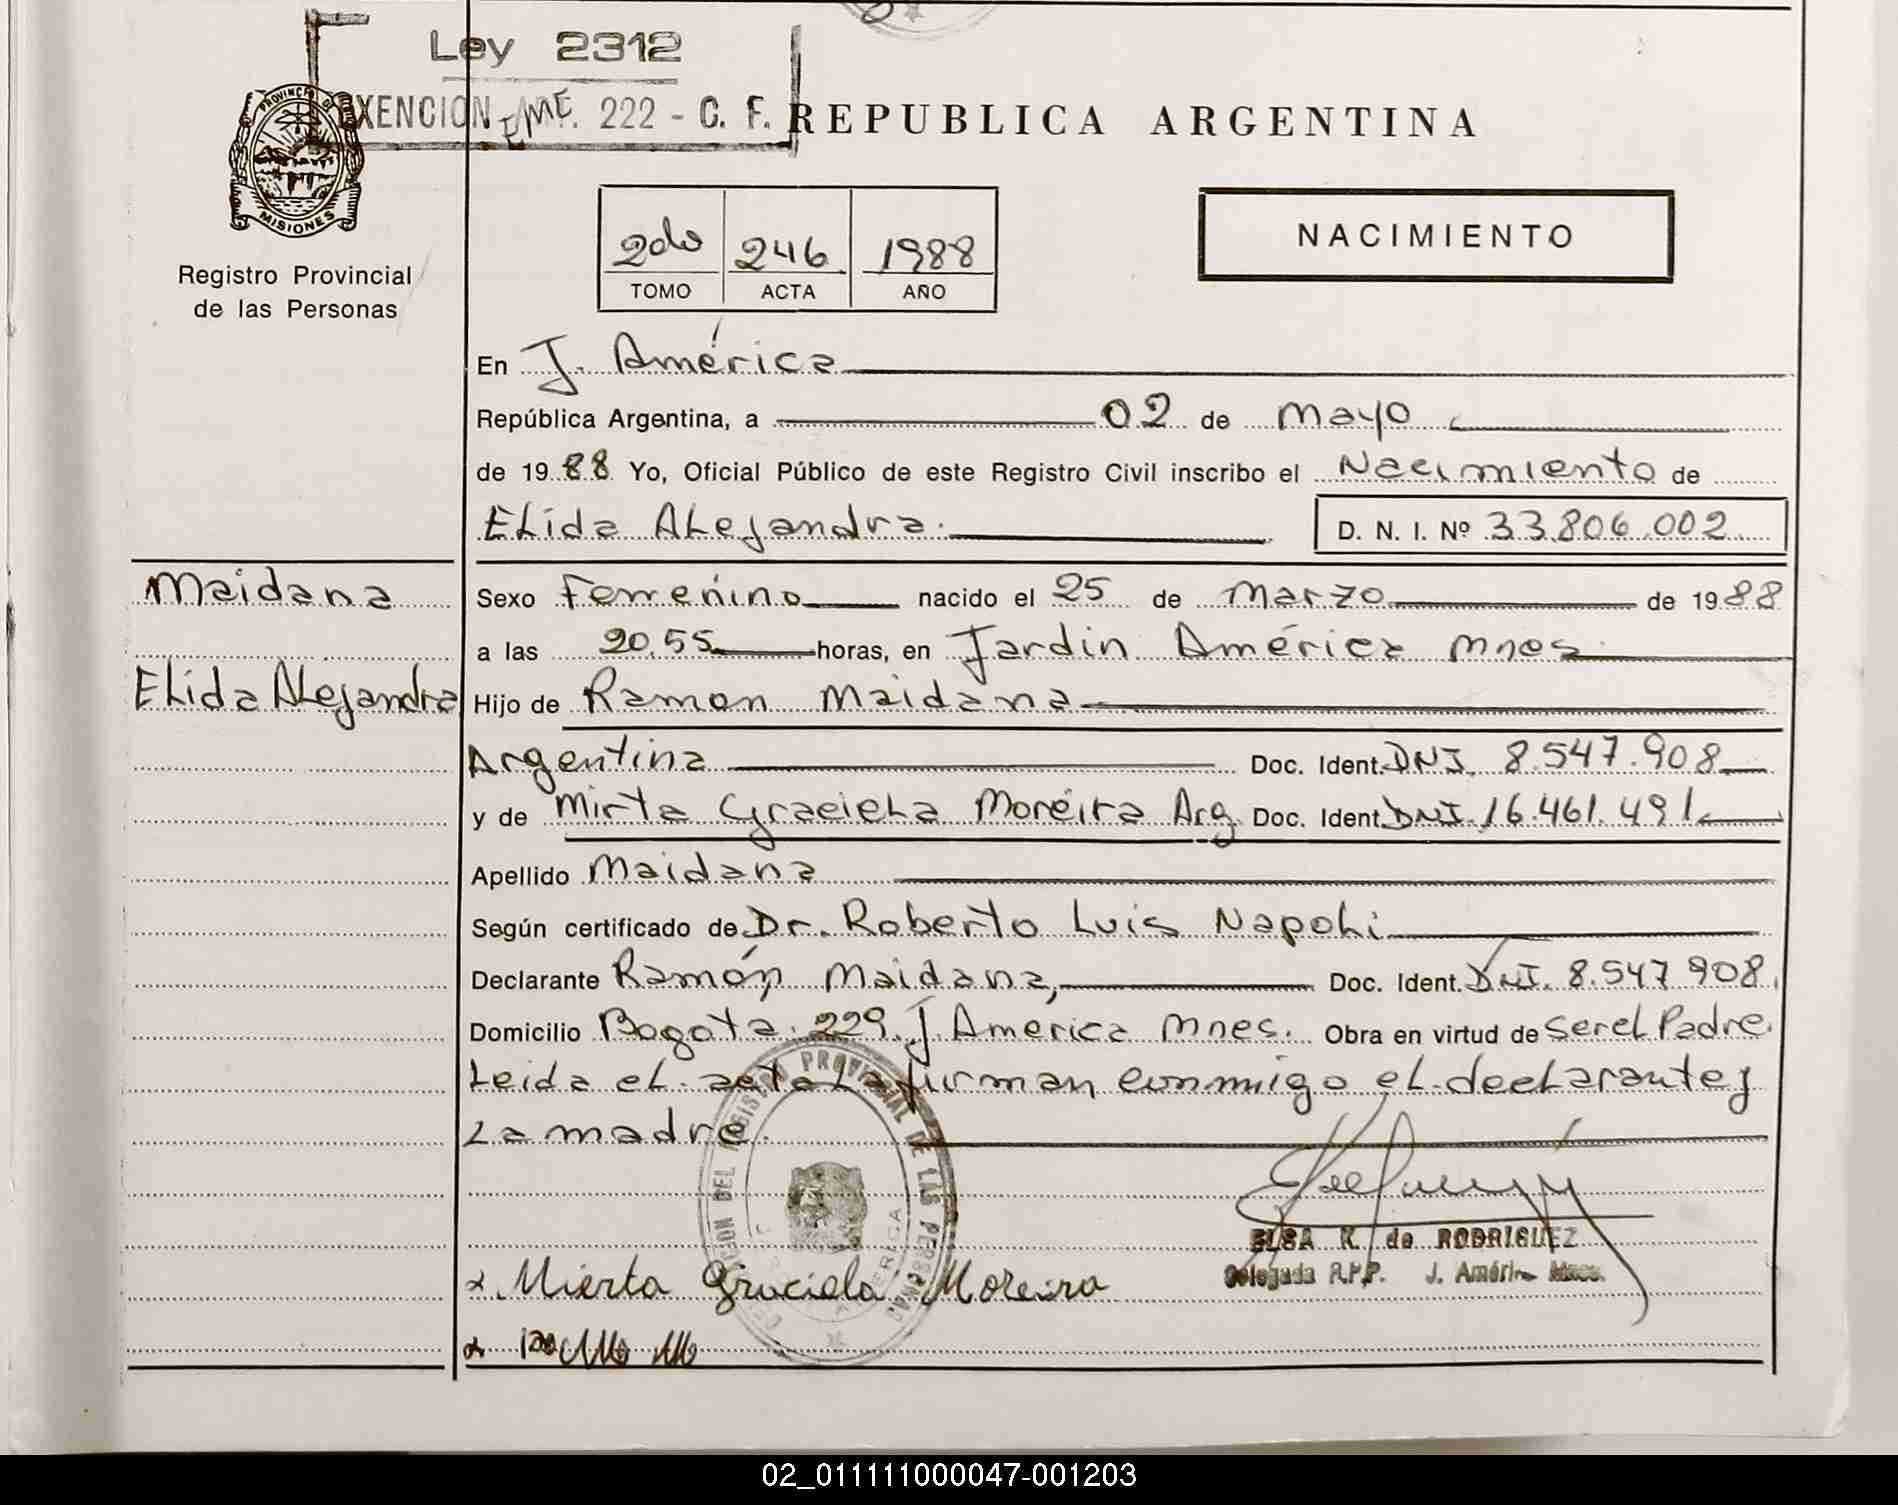 Ley 2312
EXENCION IMF. 222 - C. F.
REPUBLICA ARGENTINA
PROVINCIA DE
MISIONES
Registro Provincial
de las Personas
2do 246 1988
TOMO ACTA AÑO
NACIMIENTO
En J. América
República Argentina, a 02 de Mayo
de 19 88 Yo, Oficial Público de este Registro Civil inscribo el Nacimiento de
Elida Alejandra. D. N. I. Nº 33.806.002
Maidana
Elida Alejandra
Sexo Femenino nacido el 25 de Marzo de 19 88
a las 20.55 horas, en Jardin América Mnes.
Hijo de Ramon Maidana
Argentina Doc. Ident. DNI. 8.547.908
y de Mirta Graciela Moreira Arg. Doc. Ident DNI. 16.461.491
Apellido Maidana
Según certificado de Dr. Roberto Luis Napoli
Declarante Ramón Maidana, Doc. Ident. DNI. 8.547.908
Domicilio Bogota. 229. J. America Mnes. Obra en virtud de Ser el Padre.
Leida el acta La firman conmigo el declarante y
La madre.
DELEGACION DEL REGISTRO PROVINCIAL DE LAS PERSONAS
ELSA K. de RODRIGUEZ
Delegada R.P.P. J. América Mnes.
x Mierta Graciela Moreira
02_011111000047-001203